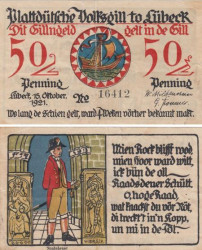 Plattdütsche Volksgill to Lübeck
Dit Gillngeld gelt in de Gill
50 50
Penning Penning
Lübeck, 15. Oktober.
1921. No 16412
Wo lang de Schien gelt, ward 4 Weken vörher bekannt makt.
Mien Rock blifft rod
mien Foor ward witt,
ick bün de oll
Raadsdener Schütt.
O, hoge Raad,
wat knackt du vör Nöt,
di treckt in'n Kopp,
un mi in de